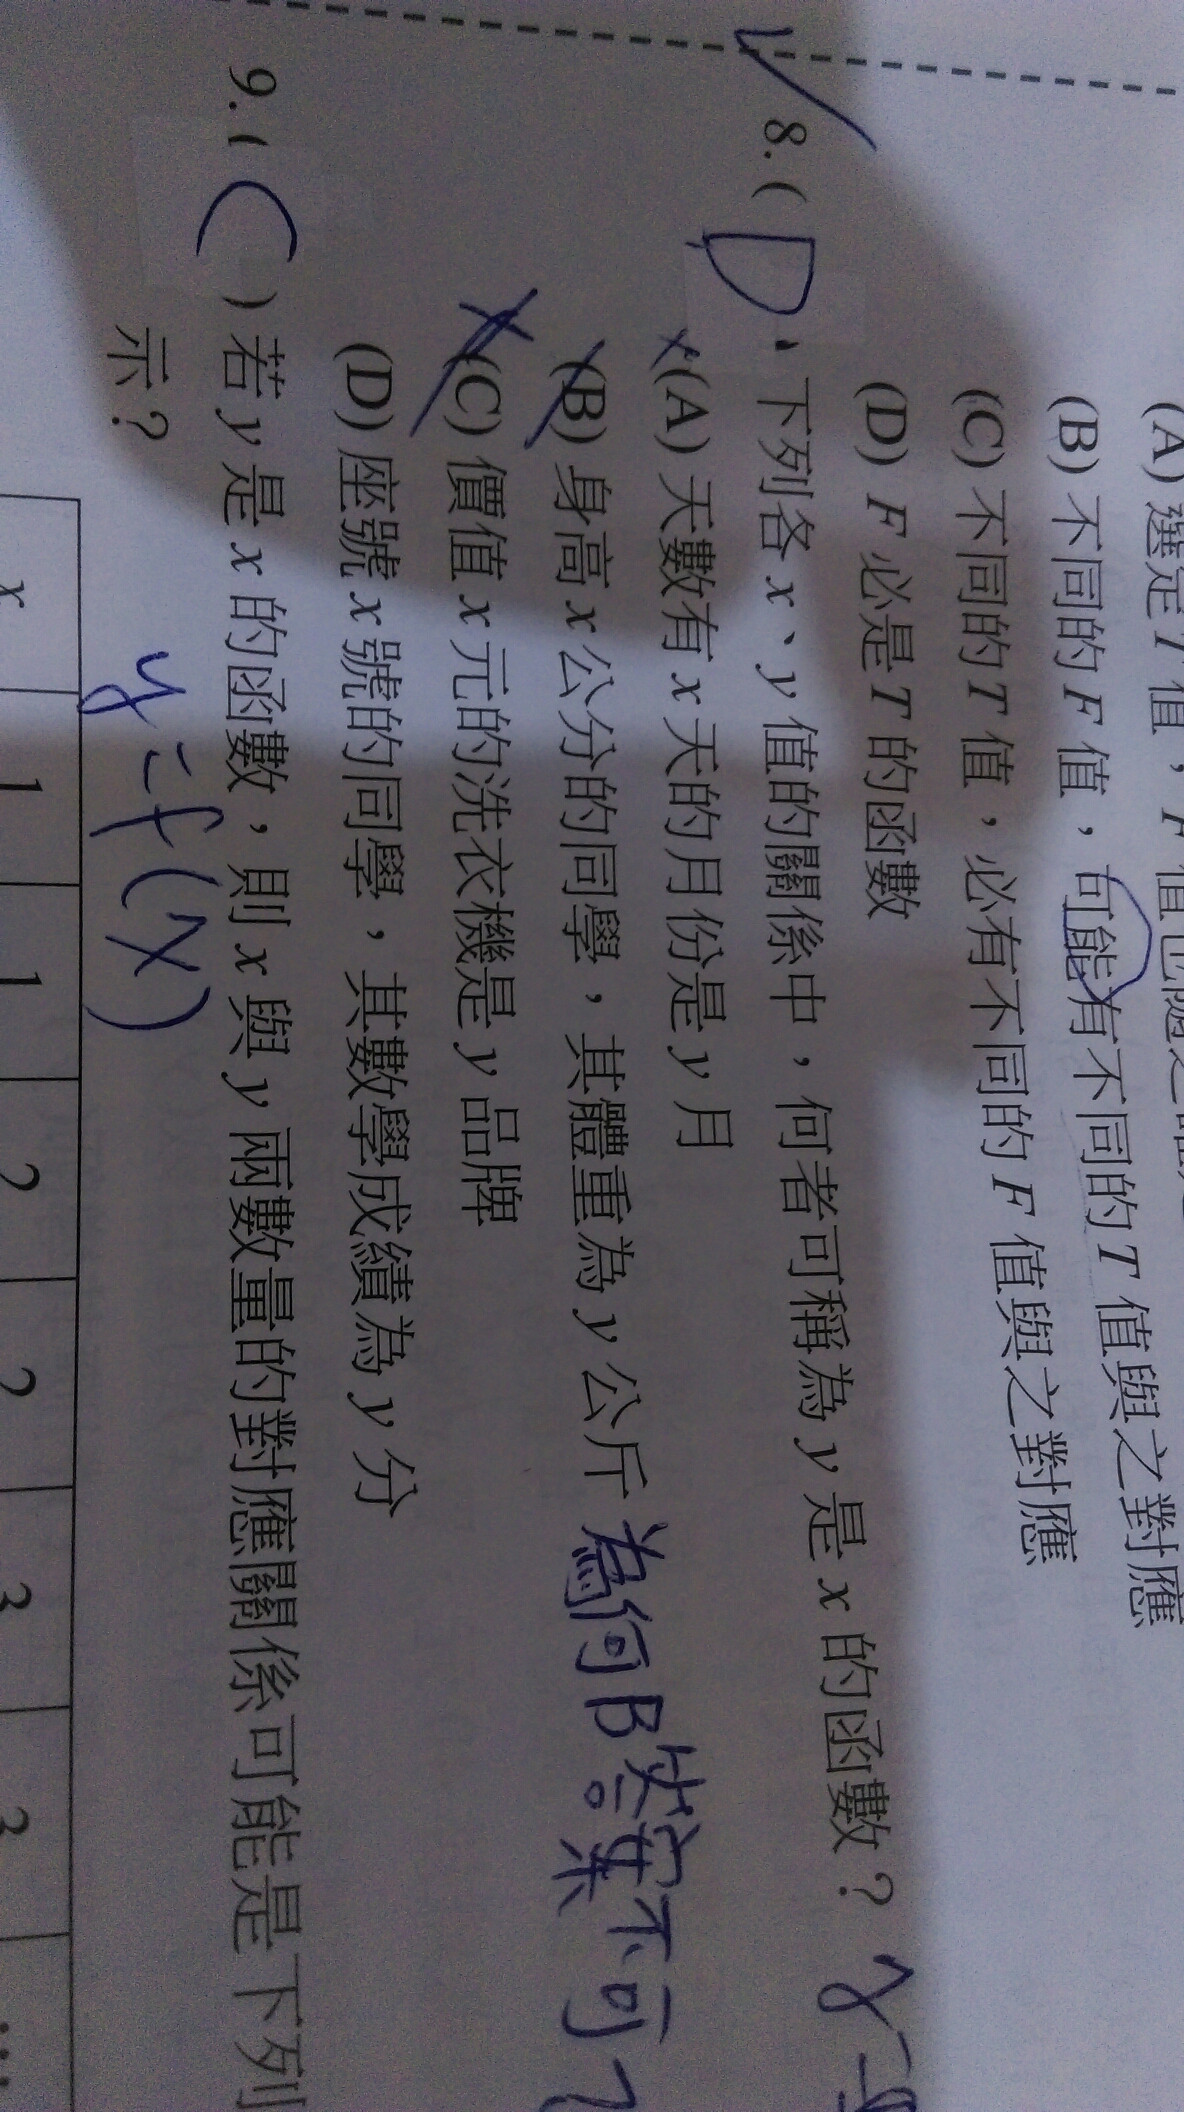 (A) 選定 T 值，F 值也隨之
(B) 不同的 F 值，可能有不同的 T 值與之對應
(C) 不同的 T 值，必有不同的 F 值與之對應
(D) F 必是 T 的函數
8. ( D ) 下列各 x、y 值的關係中，何者可稱為 y 是 x 的函數？
(A) 天數有 x 天的月份是 y 月
(B) 身高 x 公分的同學，其體重為 y 公斤 為何B答案不可?
(C) 價值 x 元的洗衣機是 y 品牌
(D) 座號 x 號的同學，其數學成績為 y 分
9. ( C ) 若 y 是 x 的函數，則 x 與 y 兩數量的對應關係可能是下列
示？
y=f(x)
x 1 1 2 2 3 3 …